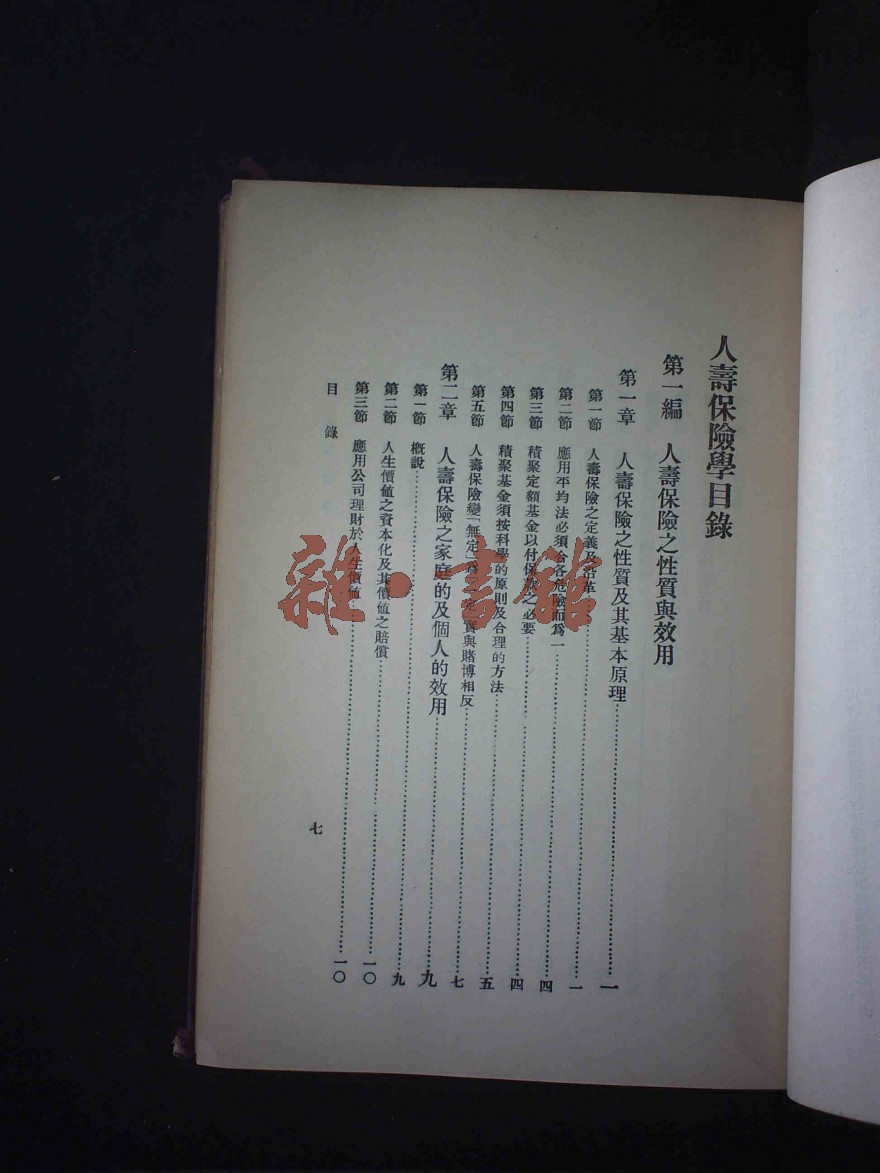 人壽保險學目錄
第一編 人壽保險之性質與效用
第一章 人壽保險之性質及其基本原理 一
第一節 人壽保險之定義及沿革 一
第二節 應用平均法必須合各危險而爲一 四
第三節 積聚定額基金以付保款之必要 四
第四節 積聚基金須按科學的原則及合理的方法 五
第五節 人壽保險變「無定」爲「一定」實與賭博相反 七
第二章 人壽保險之家庭的及個人的效用 九
第一節 概說 九
第二節 人生價值之資本化及其價值之賠償 一〇
第三節 應用公司理財於人生價值 一〇
目錄
七
雜·書館